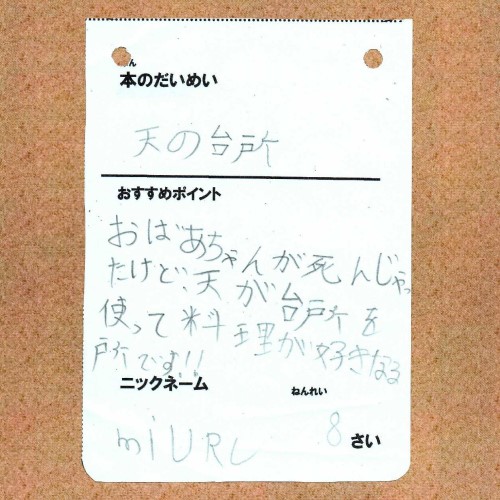 ん
本のだいめい
天の台所
おすすめポイント
おばあちゃんが死んじゃっ
たけど、天が台所を
使って料理が好きなる
所です!!
ニックネーム
ねんれい
miURU
8さい